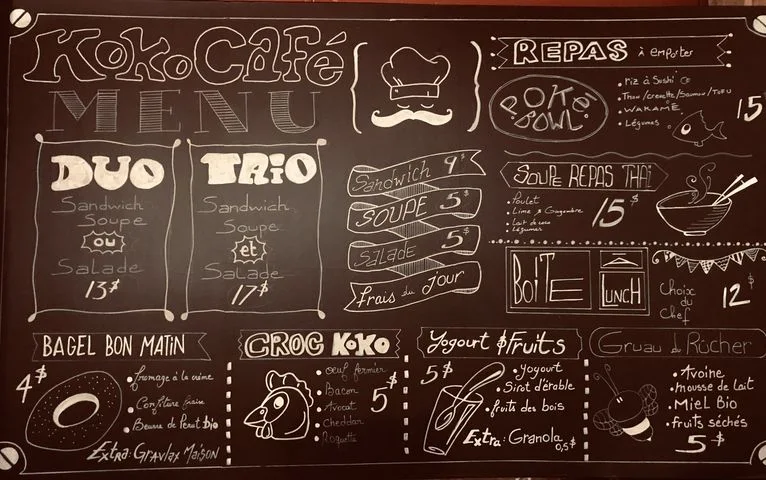 KoKoCafé
MENU
DUO
Sandwich
Soupe
ou
Salade
13$
TRiO
Sandwich
Soupe
et
Salade
17$
Sandwich 9$
SOUPE 5$
Salade 5$
frais du jour
REPAS à emporter
POKé BOWL
• riz à Sushi
• Thon/crevette/Saumon/ToFU
• WAKAMÉ
• Légumes
15
SOUPE REPAS THAï
• Poulet
• Lime & Gingembre
• Lait de coco
• Légumes
15$
BoiTE LUNCH
Choix
du
Chef
12$
BAGEL BON MATiN
4$
• fromage à la crème
• Confiture fraise
• Beurre de Penut bio
Extra: Gravlax Maison
CROC KoKo
• oeuf fermier
• Bacon
• Avocat
• Cheddar
• Roquette
5$
Yogourt & Fruits
5$
• yogourt
• Sirot d'érable
• fruits des bois
Extra: Granola
0,5$
Gruau du Rûcher
• Avoine
• mousse de lait
• MiEL Bio
• fruits séchés
5$